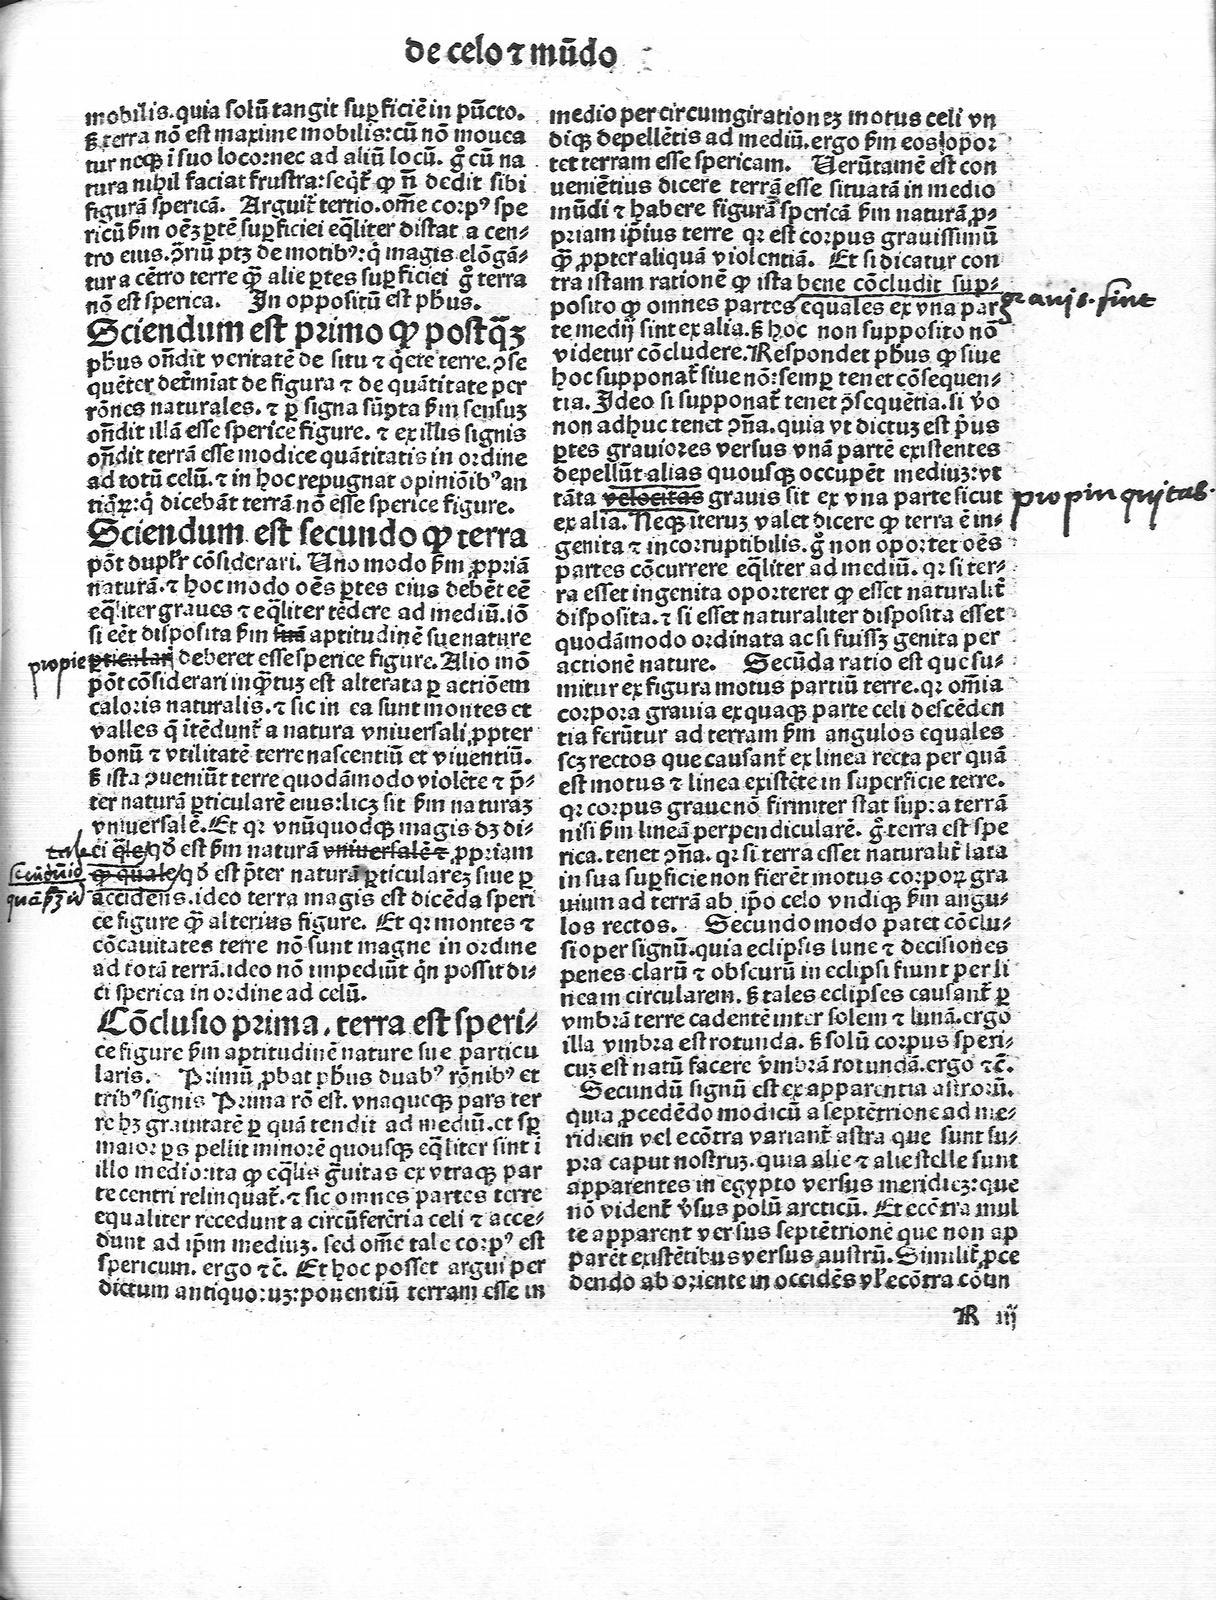 de celo ⁊ mūdo
mobilis.quia solū tangit suꝑficiē in pūcto.
ꝭ terra nō est maxime mobilis:cū nō mouea
tur neqꝫ i suo loco:nec ad aliū locū. gͦ cū na
tura nihil faciat frustra:seqͥt̄ ꝙ nō dedit sibi
figurā spericā. Arguit̄ tertio.om̄e corpꝰ spe
ricū ẜm oēꝫ ꝑtē suꝑficiei eq̄liter distat a cen⸗
tro eius.ꝯriū ptꝫ de motibꝰ:qͥ magis elōgā⸗
tur a cētro terre q̄ꝫ alie ꝑtes suꝑficiei gͦ terra
nō est sperica. In oppositū est pħus.
Sciendum est primo ꝙ postq̄ꝫ
pħus on̄dit veritatē de situ ⁊ qͥete terre.ꝯse
quēter det̄miat de figura ⁊ de quātitate per
rōnes naturales. ⁊ ꝑ signa sūpta ẜm sensuꝫ
on̄dit illā esse sperice figure. ⁊ ex illis signis
on̄dit terrā esse modice quātitatis in ordine
ad totū celū. ⁊ in hoc repugnat opinióibꝰ an
tiqͦꝝ:qͥ dicebāt terrā nō esse sperice figure.
Sciendum est secundo ꝙ terra
pōt duplr̄ cōsiderari. Uno modo ẜm ꝓpriā
naturā.⁊ hoc modo oēs ꝑtes eius debēt eē
eq̄liter graues ⁊ eq̄liter tēdere ad mediū.iō
si eēt disposita ẜm suā aptitudinē sue nature
propie ꝑticulari deberet esse sperice figure. Alio mō
pōt cōsiderari inq̄ꝫtuꝫ est alterata ꝑ actiōem
caloris naturalis.⁊ sic in ea sunt montes et
valles qͥ itēdunt̄ a natura vniuersali ꝓpter
bonū ⁊ vtilitatē terre nascentiū et viuentiū.
ꝭ ista ꝯueniūt terre quodāmodo violēte ⁊ p̄⸗
ter naturā ꝑticularē eius:licꝫ sit ẜm naturaꝫ
vniuersalē.Et qꝛ vnūquodqꝫ magis dꝫ di⸗
tale ci q̄le/qd̄ est ẜm naturā vniuersalē ⁊ ꝓpriam
ꝙ quale/qd̄ est p̄ter naturā ꝑticulareꝫ siue ꝑ
accidens.ideo terra magis est dicēda speri
ce figure q̄ꝫ alterius figure. Et qꝛ montes ⁊
cōcauitates terre nō sunt magne in ordine
ad totā terrā.ideo nō impediūt qͥn possit di⸗
ci sperica in ordine ad celū.
Cōclusio prima. terra est speri⸗
ce figure ẜm aptitudinē nature sue particu
laris. Primū ꝓbat pħus duabꝰ rōnibꝰ et
tribꝰ signis Prima rō est. vnaqueqꝫ pars ter
re hꝫ grauitatē ꝑ quā tendit ad mediū.et sꝑ
maior ꝑs pellit minorē quousqꝫ eq̄liter sint i
illo medio:ita ꝙ eq̄lis g̃uitas ex vtraqꝫ par
te centri relinquat̄.⁊ sic omnes partes terre
equaliter recedunt a circūferētia celi ⁊ acce⸗
dunt ad ip̄m mediuꝫ. sed om̄e tale corpꝰ est
spericum. ergo ⁊c̄. Et hoc posset argui per
dictum antiquoꝝ:ponentiū terram esse in
medio per circumgirationeꝫ motus celi vn
diqꝫ depellētis ad mediū.ergo ẜm eos opor
tet terram esse spericam. Uerūtamē est con
ueniētius dicere terrā esse situatā in medio
mūdi ⁊ habere figurā spericā ẜm naturā ꝓ⸗
priam ip̄ius terre qꝛ est corpus grauissimū
q̄ꝫ ꝓpter aliquā violentiā. Et si dicatur con
tra istam rationē ꝙ ista bene cōcludit sup⸗
posito ꝙ omnes partes equales ex vna par grauis.sint
te medij sint ex alia.ꝭ hoc non supposito nō
videtur cōcludere.Respondet pħus ꝙ siue
hoc supponat̄ siue nō:semꝑ tenet cōsequen⸗
tia. Ideo si supponat̄ tenet ꝯsequētia.si v̊o
non adhuc tenet ꝯn̄a. quia vt dictuꝫ est pͥus
ꝑtes grauiores versus vnā partē existentes
depellūt alias quousqꝫ occupēt mediuꝫ:vt
tāta velocitas grauis sit ex vna parte sicut propinquitas.
ex alia. Neqꝫ iteruꝫ valet dicere ꝙ terra ē in⸗
genita ⁊ incorruptibilis. gͦ non oportet oēs
partes cōcurrere eq̄liter ad mediū. qꝛ si ter⸗
ra esset ingenita oporteret ꝙ esset naturalit̄
disposita.⁊ si esset naturaliter disposita esset
quodāmodo ordinata ac si fuissꝫ genita per
actionē nature. Secūda ratio est que su⸗
mitur ex figura motus partiū terre.qꝛ om̄ia
corpora grauia ex quaqꝫ parte celi descēden
tia ferūtur ad terram ẜm angulos equales
scꝫ rectos que causant̄ ex linea recta per quā
est motus ⁊ linea existēte in superficie terre.
qꝛ corpus graue nō firmiter stat supra terrā
nisi ẜm lineā perpendicularē. gͦ terra est spe
rica. tenet ꝯn̄a. qꝛ si terra esset naturalit̄ lata
in sua suꝑficie non fierēt motus corpoꝝ gra
uium ad terrā ab ip̄o celo vndiqꝫ ẜm angu⸗
los rectos. Secundo modo patet cōclu⸗
sio per signū.quia eclipsis lune ⁊ decisiones
penes clarū ⁊ obscurū in eclipsi fiunt per li
neam circularem. ꝭ tales eclipses causant̄ ꝑ
vmbrā terre cadentē inter solem ⁊ lunā.ergo
illa vmbra est rotunda. ꝭ solū corpus speri⸗
cuꝫ est natū facere vmbrā rotundā.ergo ⁊c̄.
Secundū signū est ex apparentia astrorū.
quia ꝓcedēdo modicū a septētrione ad me⸗
ridiem vel ecōtra variant̄ astra que sunt su⸗
pra caput nostruꝫ.quia alie ⁊ alie stelle sunt
apparentes in egypto versus meridieꝫ:que
nō vident̄ v̓sus polū arcticū. Et ecōtra mul
te apparent versus septētrionē que non ap
parēt existētibus versus austrū. Similit̄ ꝓce
dendo ab oriente in occidēs vl̓ ecōtra cōtin
R iij